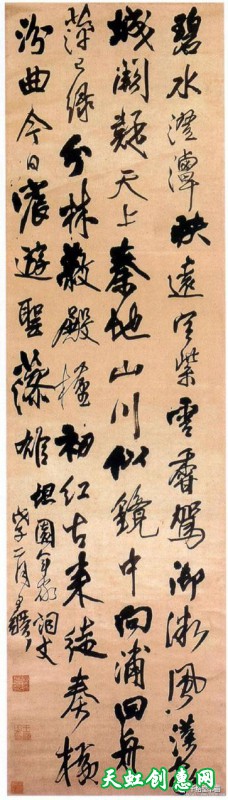 碧水澄潭映遠空紫雲睿駕御微風漢家
城闕疑天上秦地山川似鏡中向浦回舟
萍已綠分林蔽殿槿初紅古來徒奏橫
汾曲今日宸遊聖藻雄 坦圃年家詞丈
戊子二月王鐸
天虹创惠网